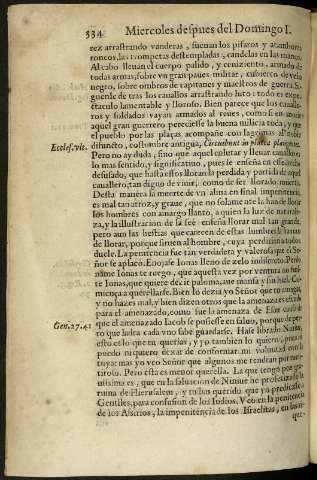 334 Miercoles despues del Domingo I.
rez arrastrando vanderas, suenan los pifaros y atambores
roncos, las trompetas destempladas, candelas en las manos.
Al cabo lleuan el cuerpo palido, y ceniziento, armado de
todas armas, sobre vn gran paues militar, cubierto de velo
negro, sobre ombros de capitanes y maestros de guerra. Si-
guenle de tras los cauallos arrastrando luto: todo es espe-
ctaculo lamentable y lloroso. Bien parece que los caualle-
ros y soldados vayan armados al reues, como si en
aquel gran guerrero pereciesse la buena milicia toda, y que
el pueblo por las plaças acompañe con lagrimas al noble
Eccles. vlt. difuncto, costumbre antigua, Circuibunt in platea plangentes.
Pero no ay duda, sino que aquel enlutar y lleuar cauallos
lo mas sentido, y significatiuo, pues se enseña en esse
desusado, que hasta essos lloran la perdida, y partida de aquel
cauallero, tan digno de viuir, como de ser llorado muerto.
Desta manera la muerte de vn alma en final impenitencia,
es mal tan atroz, y graue, que no solamente la han de llorar
los hombres con amargo llanto, a quien la luz de naturale-
za, y la illustracion de la fee enseña llorar mal tan grande,
pero aun las bestias que carecen de estas lumbres la
de llorar, porque siruen al hombre, cuya perdicion a todos
duele. La penitencia fue tan verdadera y valerosa que el Se-
ñor se aplacò. Enojase Ionas lleno de zelo indiscreto. Perdo
name Ionas te ruego, que aquesta vez por ventura no fuis-
te Ionas, que quiere dezir paloma, mas
mença a querellarse. Bien lo dezia yo Señor que tu amagas,
y no hazes mal, y bien dizen otros que la amenaza es
para el amenazado, como fue la amenaza de Esau
Gen. 27. 41 que el amenazado Iacob se pusiesse en saluo, porque de
ro que ladra cada vno sabe guardarse. Hase librado Niniue,
esto es lo que tu querias, y yo tambien lo quiero, pues
puedo ni quiero dexar de conformar mi voluntad con la
tuya: mas yo veo Señor que algunos me tendran por
tiroso. Pero esta es menor querella. La que tengo por
uissima es, que en la saluacion de Niniue he profetizado la
ruina de Hierusalem, y tu has querido que yo predicasse a
Gentiles, para confusion de los Iudios. Veo en la penitencia
de los Assirios, la impenitencia de los Israelitas, en los
que-